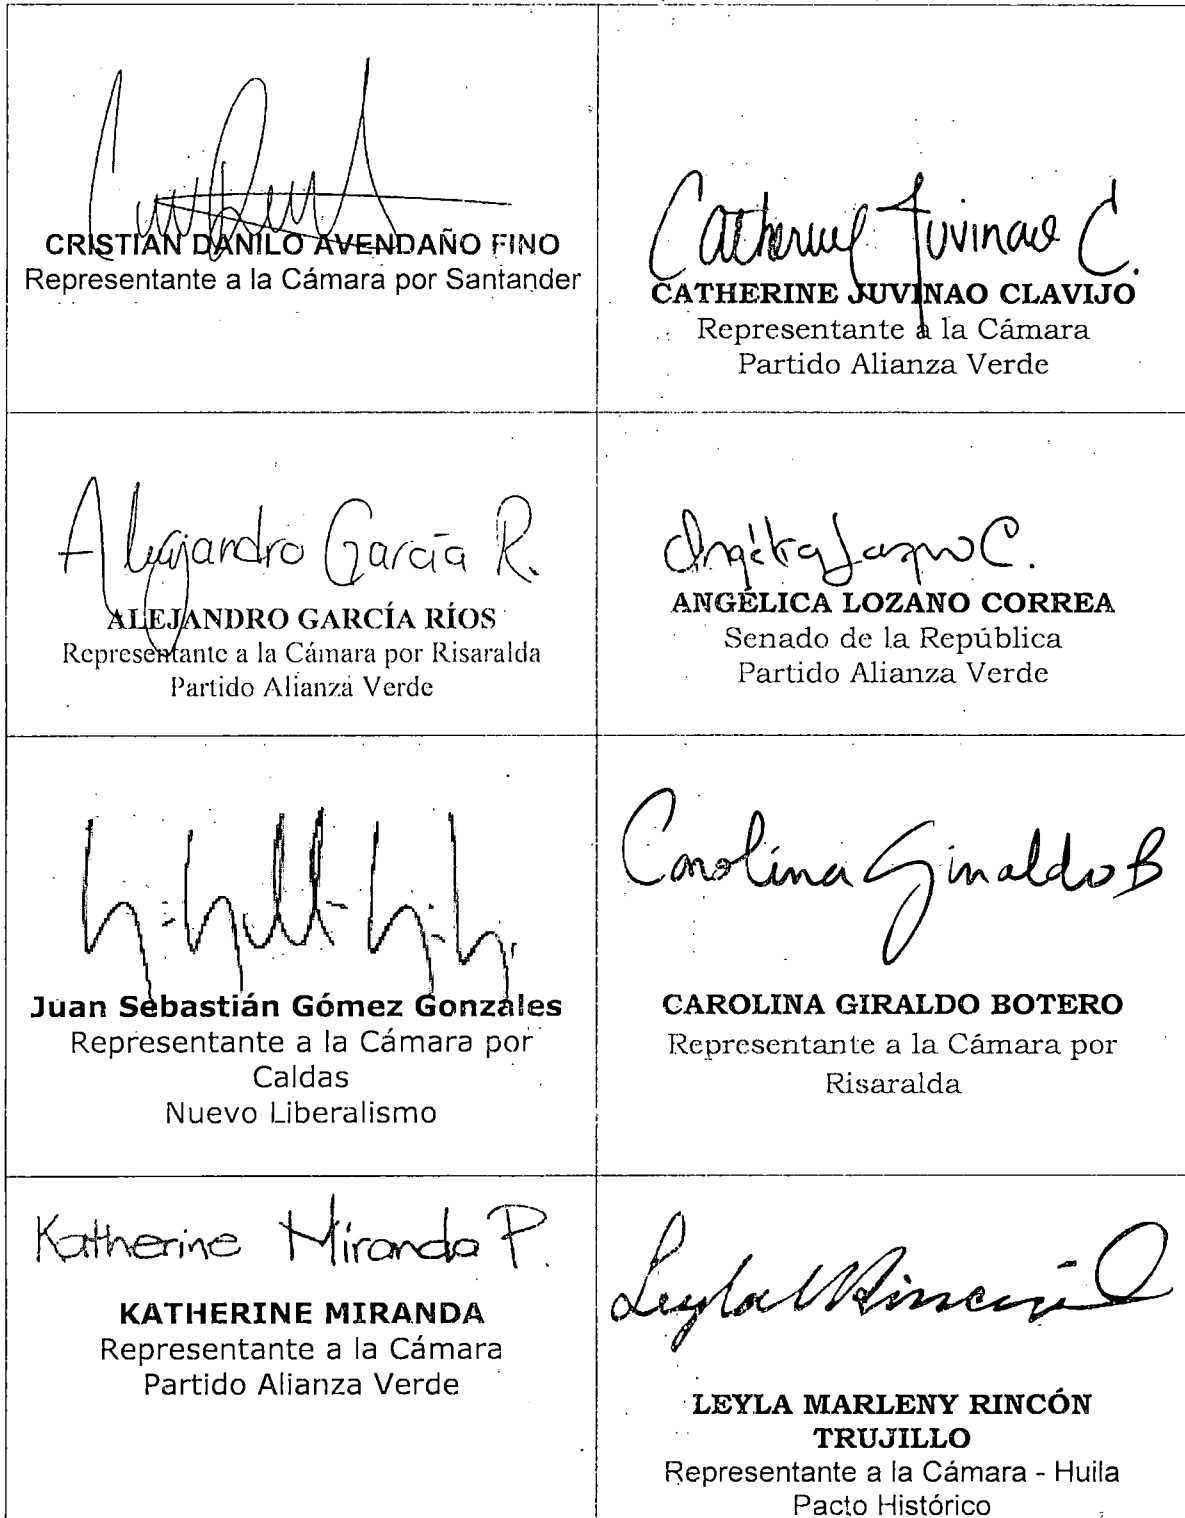 CRISTIAN DANILO AVENDAÑO FINO
Representante a la Cámara por Santander
Catherine Juvinao C.
CATHERINE JUVINAO CLAVIJO
Representante a la Cámara
Partido Alianza Verde
Alejandro García R.
ALEJANDRO GARCÍA RÍOS
Representante a la Cámara por Risaralda
Partido Alianza Verde
Angélica Lozano C.
ANGÉLICA LOZANO CORREA
Senado de la República
Partido Alianza Verde
Juan Sebastián Gómez Gonzales
Representante a la Cámara por
Caldas
Nuevo Liberalismo
Carolina Giraldo B
CAROLINA GIRALDO BOTERO
Representante a la Cámara por
Risaralda
Katherine Miranda P.
KATHERINE MIRANDA
Representante a la Cámara
Partido Alianza Verde
Leyla M Rincón
LEYLA MARLENY RINCÓN
TRUJILLO
Representante a la Cámara - Huila
Pacto Histórico